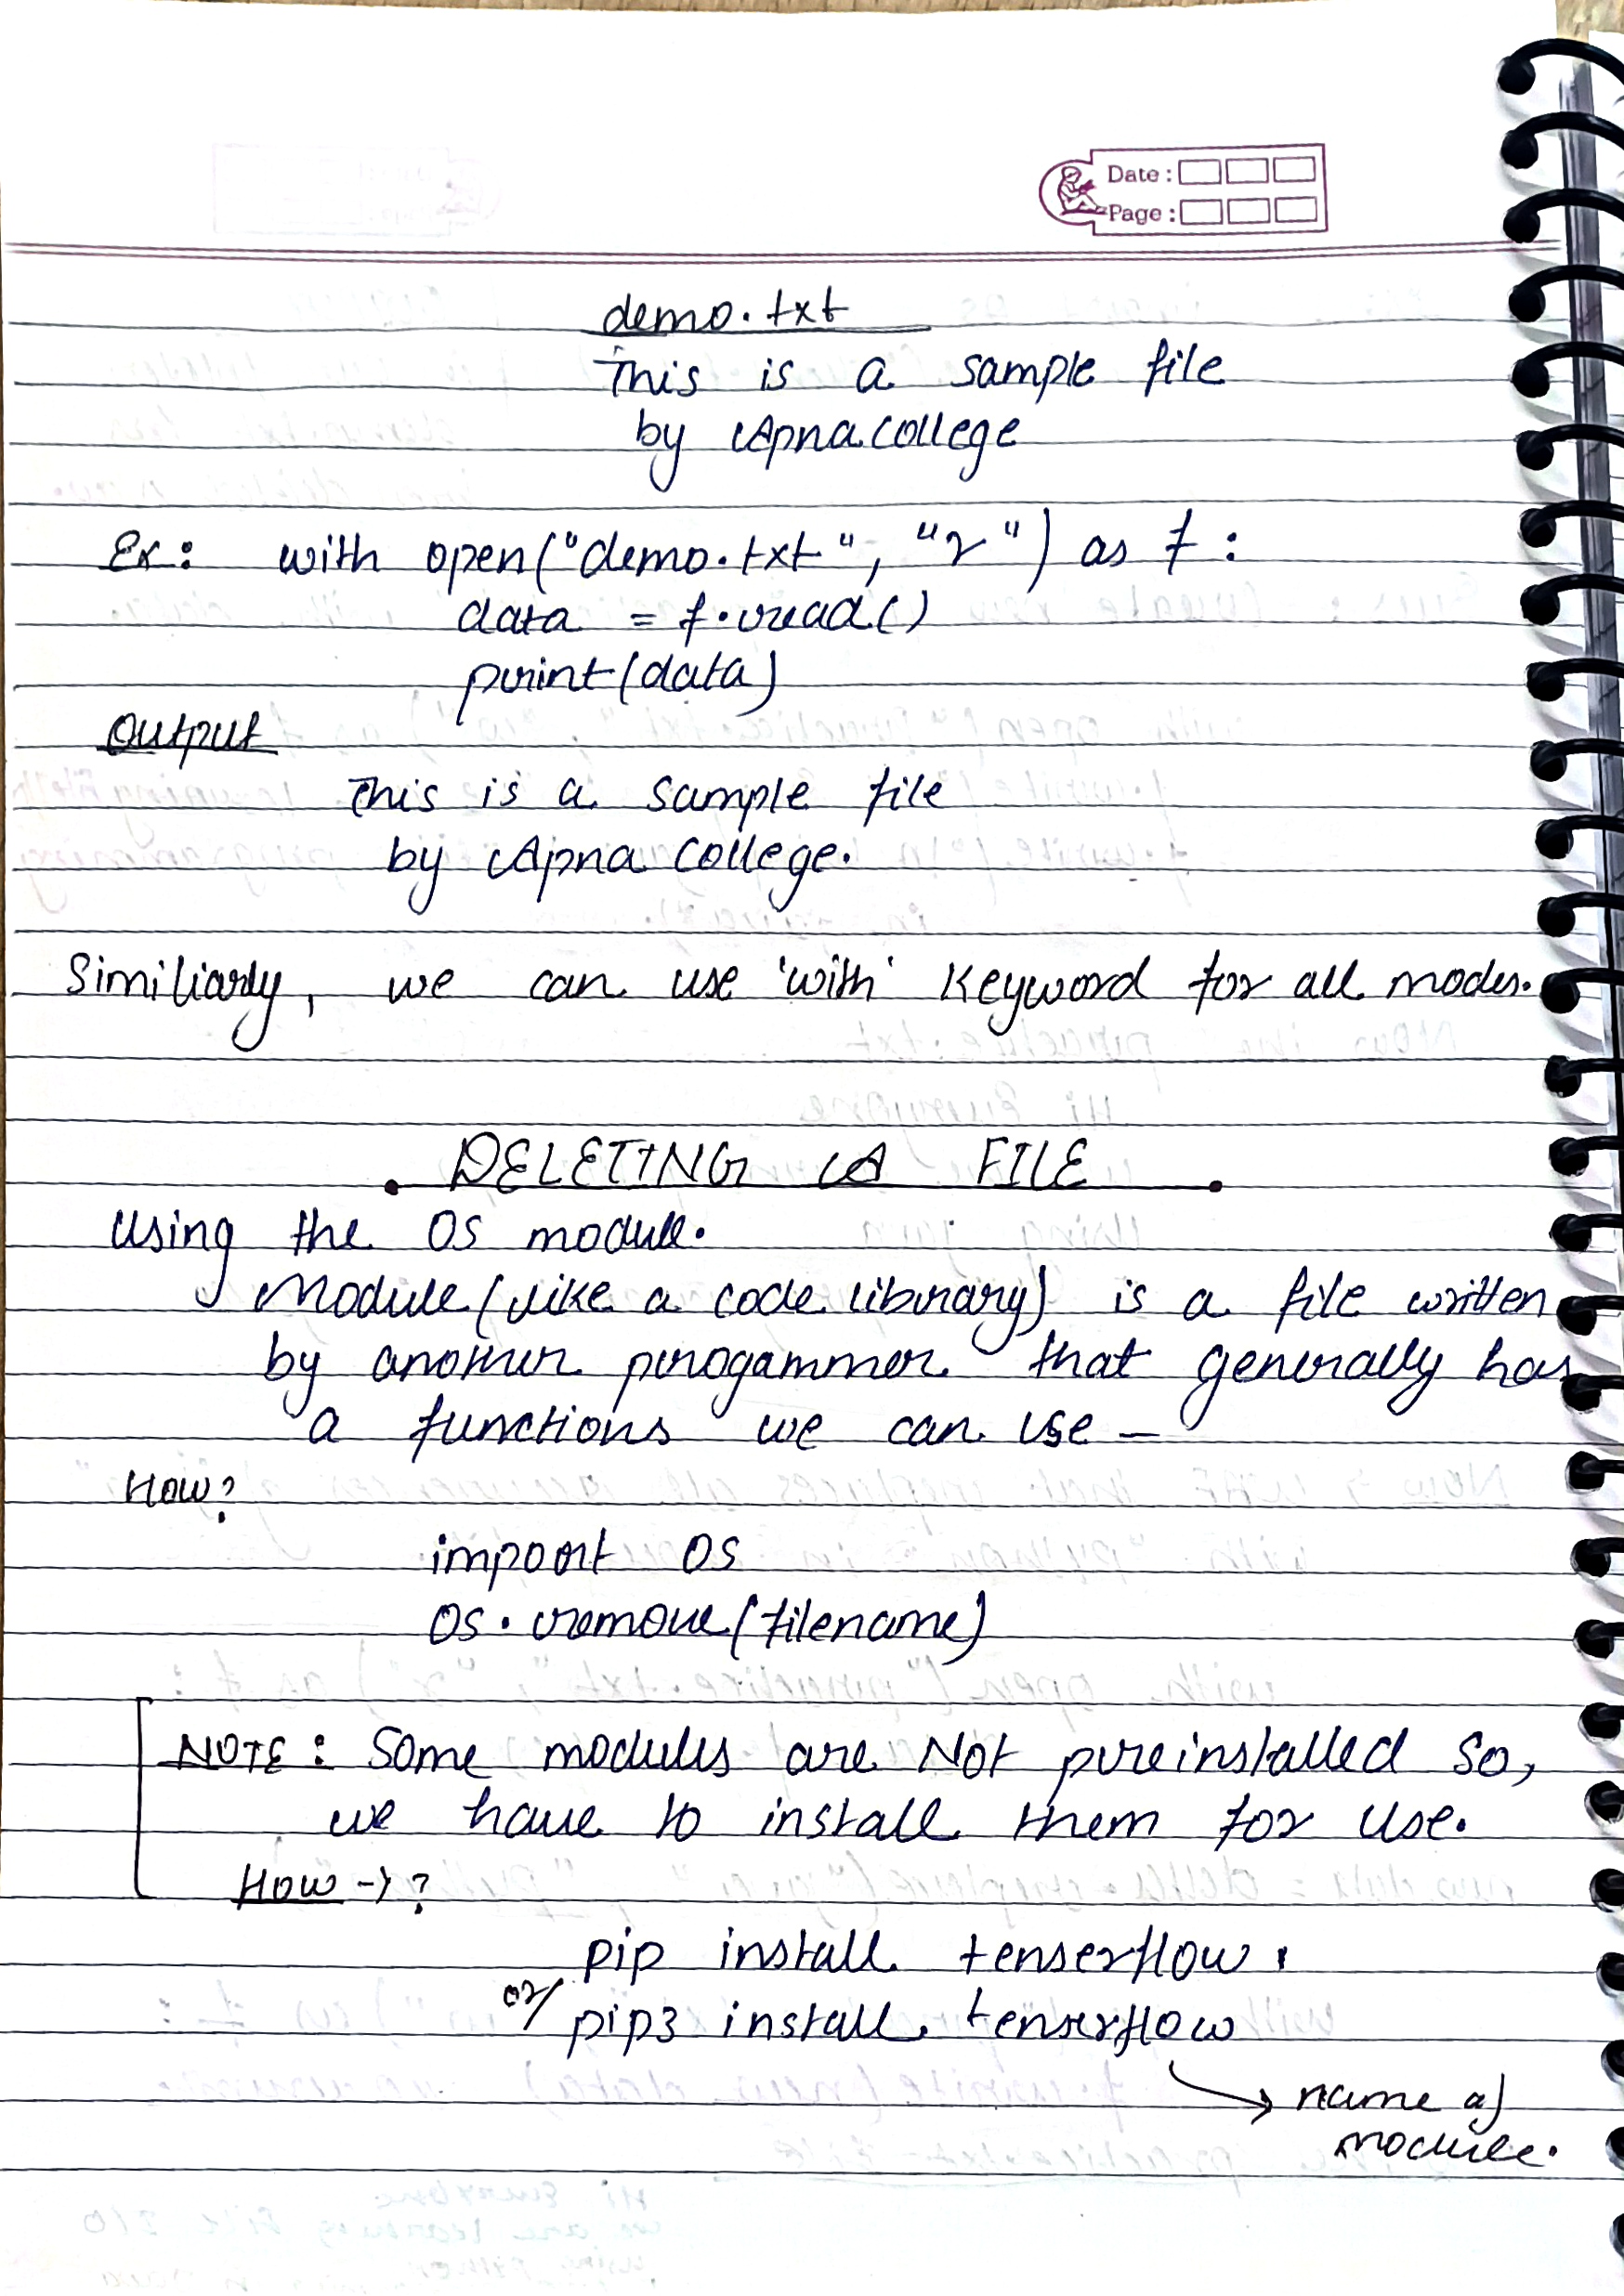 Date :
Page :
demo.txt
This is a sample file
by Apna College
Ex: with open("demo.txt", "r") as f :
data = f.read()
print(data)
Output
This is a sample file
by Apna College.
Similiarly, we can use 'with' keyword for all modes.
DELETING A FILE
Using the OS module.
Module (like a code library) is a file written
by another progammer that generally has
a functions we can use –
How?
import OS
OS.remove(filename)
NOTE : Some modules are Not preinstalled so,
we have to install them for use.
How -> ?
pip install tenserflow.
or/ pip3 install tenserflow
name of
module.